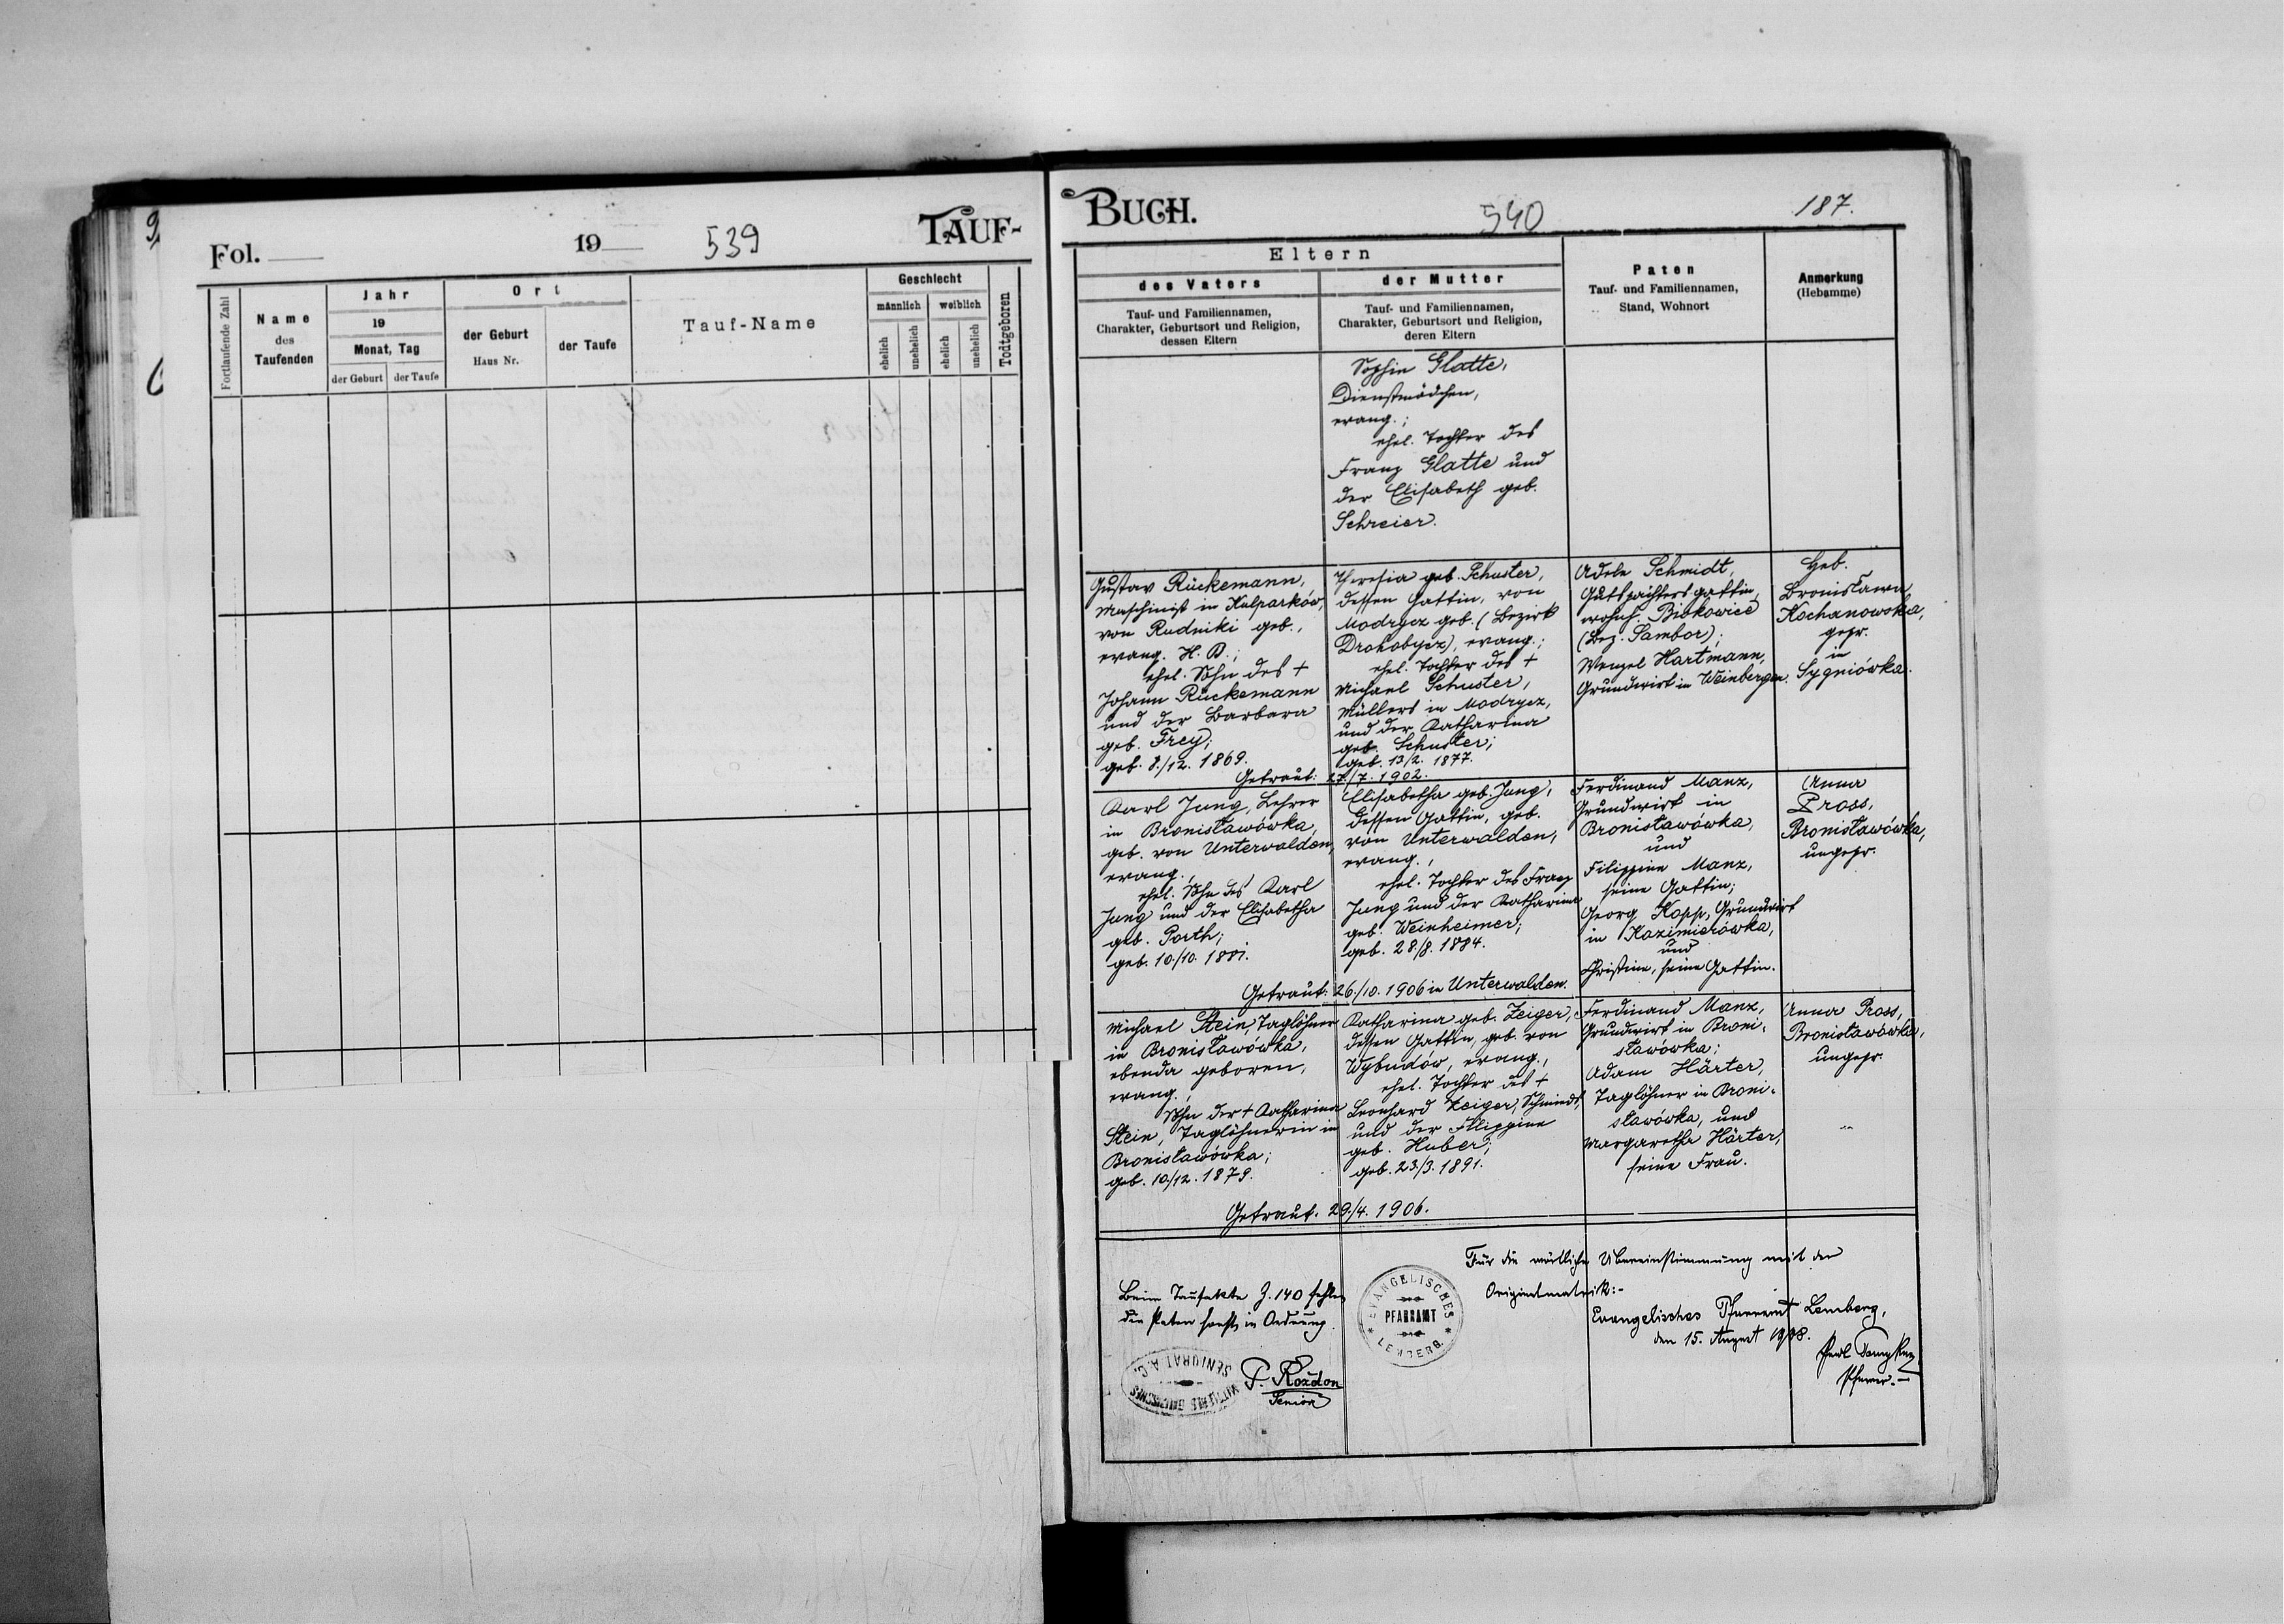 Fol.
19
539
TAUF-
Fortlaufende Zahl
Name
des
Taufenden
Jahr
19
Monat, Tag
der Geburt
der Taufe
Ort
der Geburt
Haus Nr.
der Taufe
Tauf-Name
Geschlecht
männlich
weiblich
ehelich
unehelich
ehelich
unehelich
Todtgeboren
BUCH.
540
187.
Eltern
des Vaters
Tauf- und Familiennamen,
Charakter, Geburtsort und Religion,
dessen Eltern
der Mutter
Tauf- und Familiennamen,
Charakter, Geburtsort und Religion,
deren Eltern
Paten
Tauf- und Familiennamen,
Stand, Wohnort
Anmerkung
(Hebamme)
Sophie Glatte,
Dienstmädchen,
evang.;
ehel. Tochter des
Franz Glatte und
der Elisabeth geb.
Schreier.
Gustav Rückemann,
Maschinist in Kulparków,
von Rudniki geb.,
evang. H. B.;
ehel. Sohn des +
Johann Rückemann
und der Barbara
geb. Frey;
geb. 8./12. 1869.
Theresia geb. Schuster,
dessen Gattin, von
Modrycz geb. (Bezirk
Drohobycz), evang.;
ehel. Tochter des +
Michael Schuster,
Müllers in Modrycz,
und der Katharina
geb. Schuster;
geb. 13/2. 1877.
Getraut: 27./7. 1902.
Adele Schmidt,
Gutspächtersgattin,
wohnh. Biskowice
(Bez. Sambor);
Wenzel Hartmann,
Grundwirt in Weinbergen.
Heb.
Bronisława
Kochanowska,
gepr.
in
Sygniówka.
Karl Jung, Lehrer
in Bronisławówka,
geb. von Unterwalden,
evang.,
ehel. Sohn des Karl
Jung und der Elisabetha
geb. Porth;
geb. 10./10. 1881.
Elisabetha geb. Jung,
dessen Gattin, geb.
von Unterwalden,
evang.,
ehel. Tochter des Franz
Jung und der Katharina
geb. Weinheimer;
geb. 28./8. 1884.
Getraut: 26./10. 1906 in Unterwalden.
Ferdinand Manz,
Grundwirt in
Bronisławówka,
und
Filippine Manz,
seine Gattin;
Georg Kopp, Grundwirt
in Kazimierówka,
und
Christine, seine Gattin.
Anna
Pross,
Bronisławówka,
ungepr.
Michael Stein, Taglöhner
in Bronisławówka,
ebenda geboren,
evang.,
Sohn der + Katharina
Stein, Taglöhnerin in
Bronisławówka;
geb. 10/12. 1879.
Katharina geb. Zeiger,
dessen Gattin, geb. von
Wybudów, evang.,
ehel. Tochter des +
Leonhard Zeiger, Schmiedt,
und der Filippine
geb. Huber;
geb. 23/3. 1891.
Getraut. 29./4. 1906.
Ferdinand Manz,
Grundwirt in Broni-
sławówka;
Adam Härter,
Taglöhner in Broni-
sławówka, und
Margaretha Härter,
seine Frau.
Anna Pross,
Bronisławówka,
ungepr.
Beim Taufakte Z. 140 fehlen
die Paten sonst in Ordnung.
P. Rozdon
Senior
EVANGELISCHES
PFARRAMT
LEMBERG.
SENIORAT A. C.
Für die wörtliche Übereinstimmung mit der
Originalmatrik:-
Evangelisches Pfarramt Lemberg,
den 15. August 1908.
Pfarrer.-